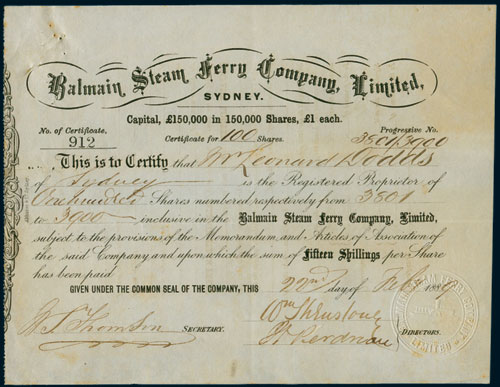 Balmain Steam Ferry Company, Limited,
SYDNEY.
Capital, £150,000 in 150,000 Shares, £1 each.
No. of Certificate, Progressive No.
912 Certificate for 100 Shares.
This is to Certify that Mr Leonard Dodds
of Sydney is the Registered Proprietor of
Shares numbered respectively from
to inclusive in the Balmain Steam Ferry Company, Limited,
subject to the provisions of the Memorandum and Articles of Association of
the said Company and upon which the sum of Fifteen Shillings per Share
has been paid.
GIVEN UNDER THE COMMON SEAL OF THE COMPANY, THIS 22nd day of Feb 188
Thomson SECRETARY.
DIRECTORS.